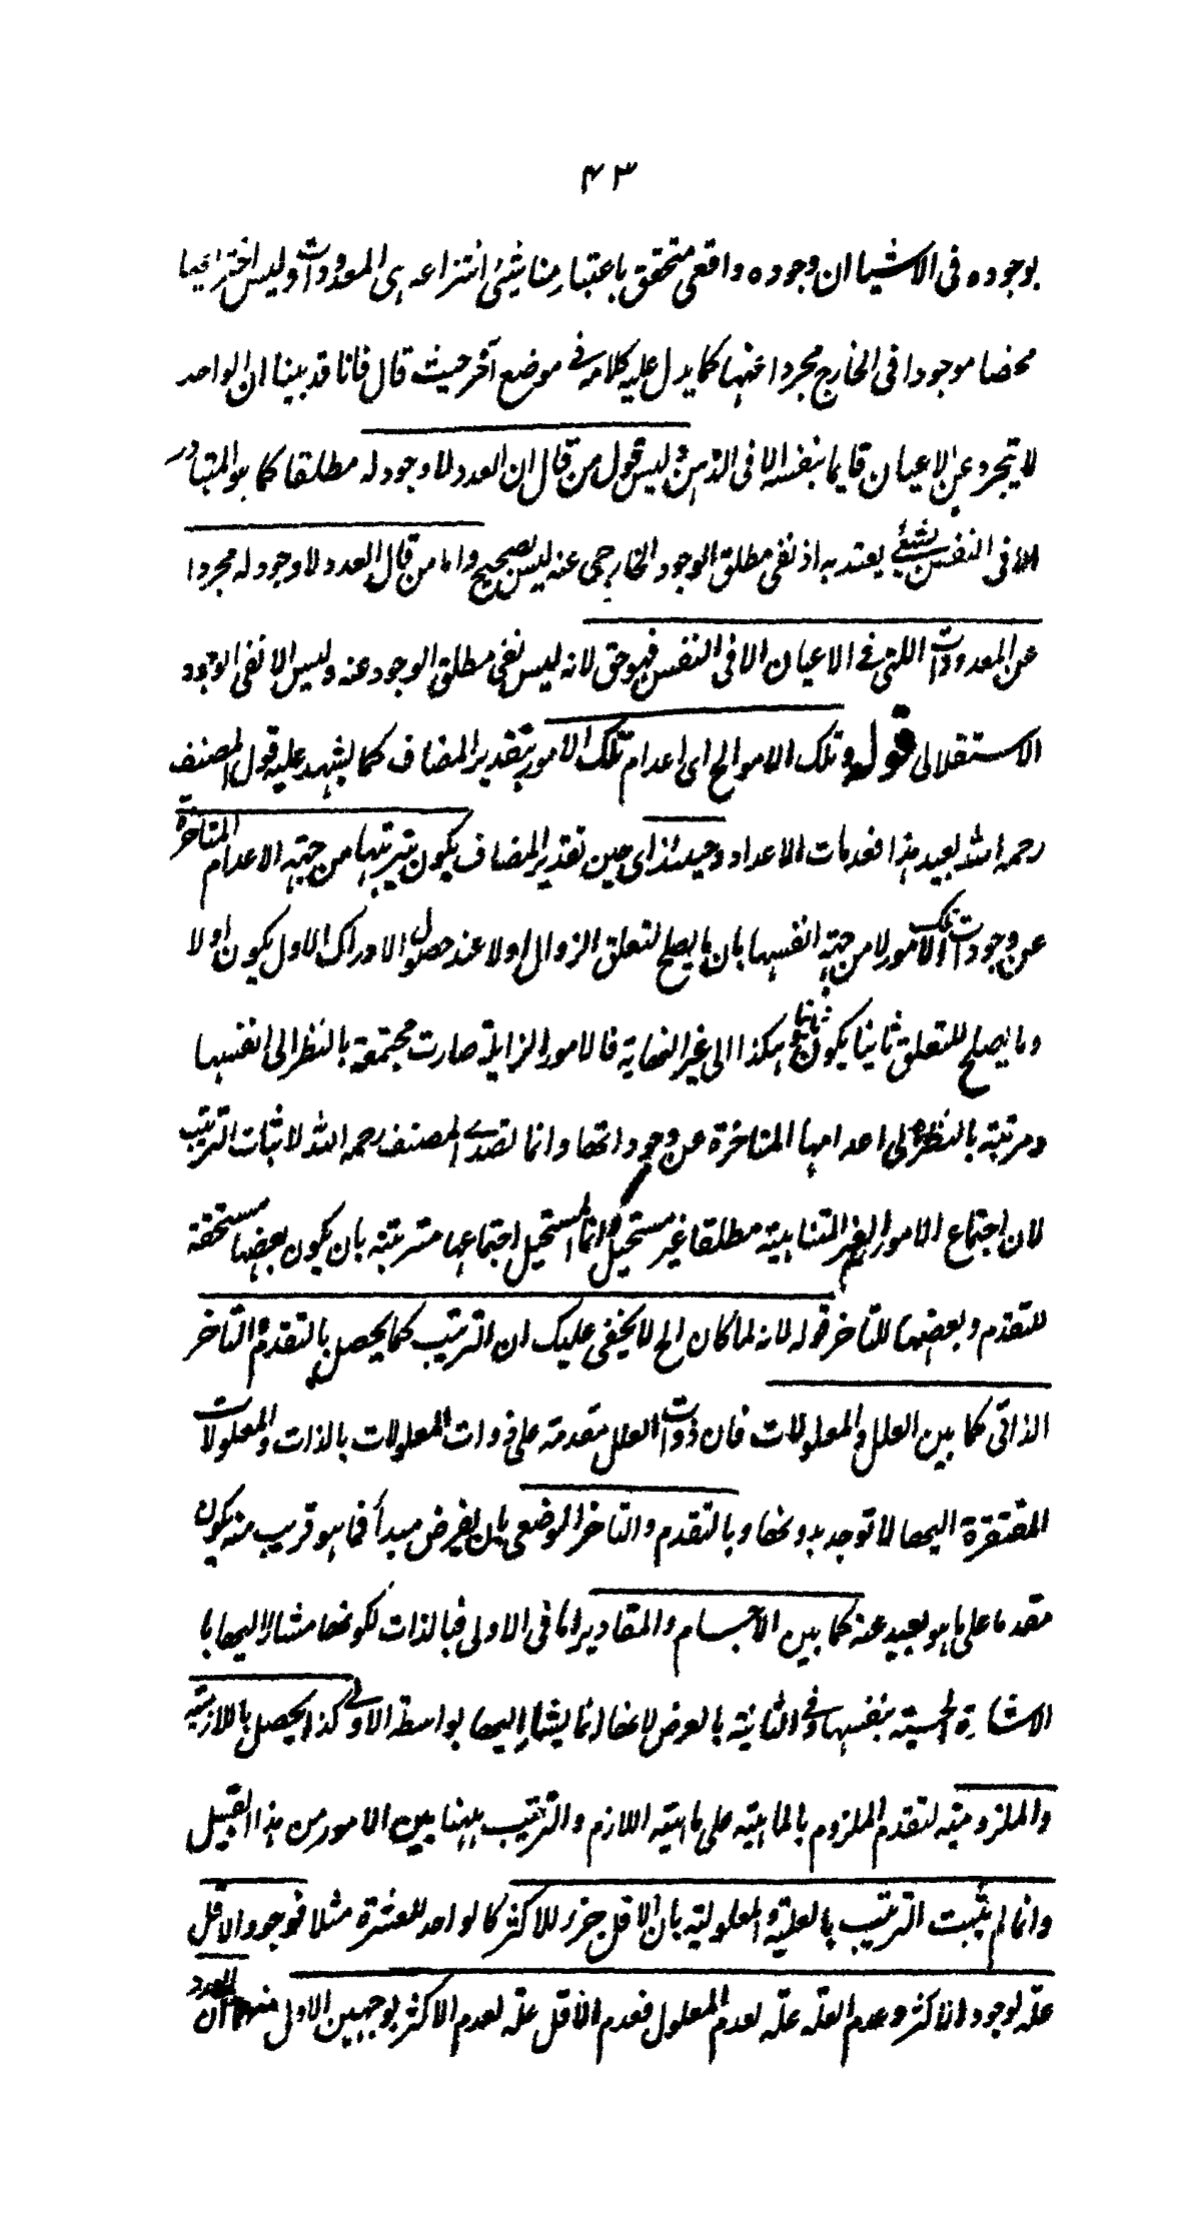 ۴۳
بوجوده فى الاشيا ان وجوده واقعى متحقق باعتبار مناشئ انتزاعه هى المعدودات وليس اختراعيا
محضا موجودا فى الخارج مجردا عنها كما يدل عليه كلامه فى موضع آخر حيث قال فانا قد بينا ان الواحد
لا يتجرد عن الاعيان قايما بنفسه الا فى الذهن وليس قول من قال ان العدد لا وجود له مطلقا كما هو المتبادر
الا فى النفس بشئ يعتد به اذ نفى مطلق الوجود الخارجى عنه ليس بصحيح واما من قال العدد لا وجود له مجردا
عن المعدودات اللتى فى الاعيان الا فى النفس فهو حق لانه ليس نفى مطلق الوجود عنه وليس الا نفى الوجود
الاستقلالى قوله وتلك الامور الخ اى اعدام تلك الامور بتقدير المضاف كما يشهد عليه قول المصنف
رحمه الله بعيد هذا فعدمات الاعداد وحينئذ اى حين تقدير المضاف يكون ترتبها من جهة الاعدام المتاخرة
عن وجودات تلك الامور لا من جهة انفسها بان ما يصلح لتعلق الزوال اولا عند حصول الادراك الاول يكون اولا
وما يصلح للتعلق ثانيا يكون ثانيا وهكذا الى غير النهاية فالامور الزايلة صارت مجتمعة بالنظر الى انفسها
ومرتبة بالنظر الى اعدامها المتاخرة عن وجوداتها وانما تصدى المصنف رحمه الله لاثبات الترتيب
لان اجتماع الامور الغير المتناهية مطلقا غير مستحيل وانما المستحيل اجتماعها مترتبة بان يكون بعضها مستحقة
للتقدم وبعضها للتأخر قوله لانه لما كان الخ لا يخفى عليك ان الترتيب كما يحصل بالتقدم والتأخر
الذاتى كما بين العلل والمعلولات فان ذوات العلل متقدمة على ذوات المعلولات بالذات والمعلولات
المفتقرة اليها لا توجد بدونها وبالتقدم والتاخر الوضعى بان يفرض مبدأ فما هو قريب منه يكون
مقدما على ما هو بعيد عنه كما بين الاجسام والمقادير اما فى الاولى فبالذات لكونها مشارا اليها با
الاشارة الحسية بنفسها وفى الثانية بالعرض لانها انما يشار اليها بواسطة الاولى كذا يحصل باللازمية
والملزومية لتقدم الملزوم بالماهية على ماهية اللازم والترتيب ههنا بين الامور من هذا القبيل
وانما لم يثبت الترتيب بالعلية والمعلولية بان الاقل جزء للاكثر كالواحد للعشرة مثلا فوجود الاقل
علة لوجود الاكثر وعدم العلة علة لعدم المعلول فعدم الاقل علة لعدم الاكثر بوجهين الاول منهما ان العدد